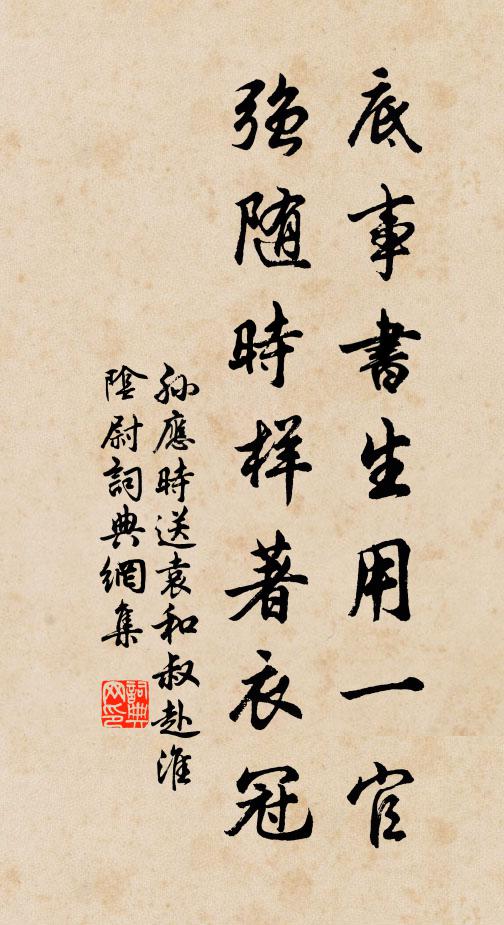 底事書生用一官
強随時样著衣冠
孫應時送袁和叔赴淮
陰尉詞典網集
詞典网印